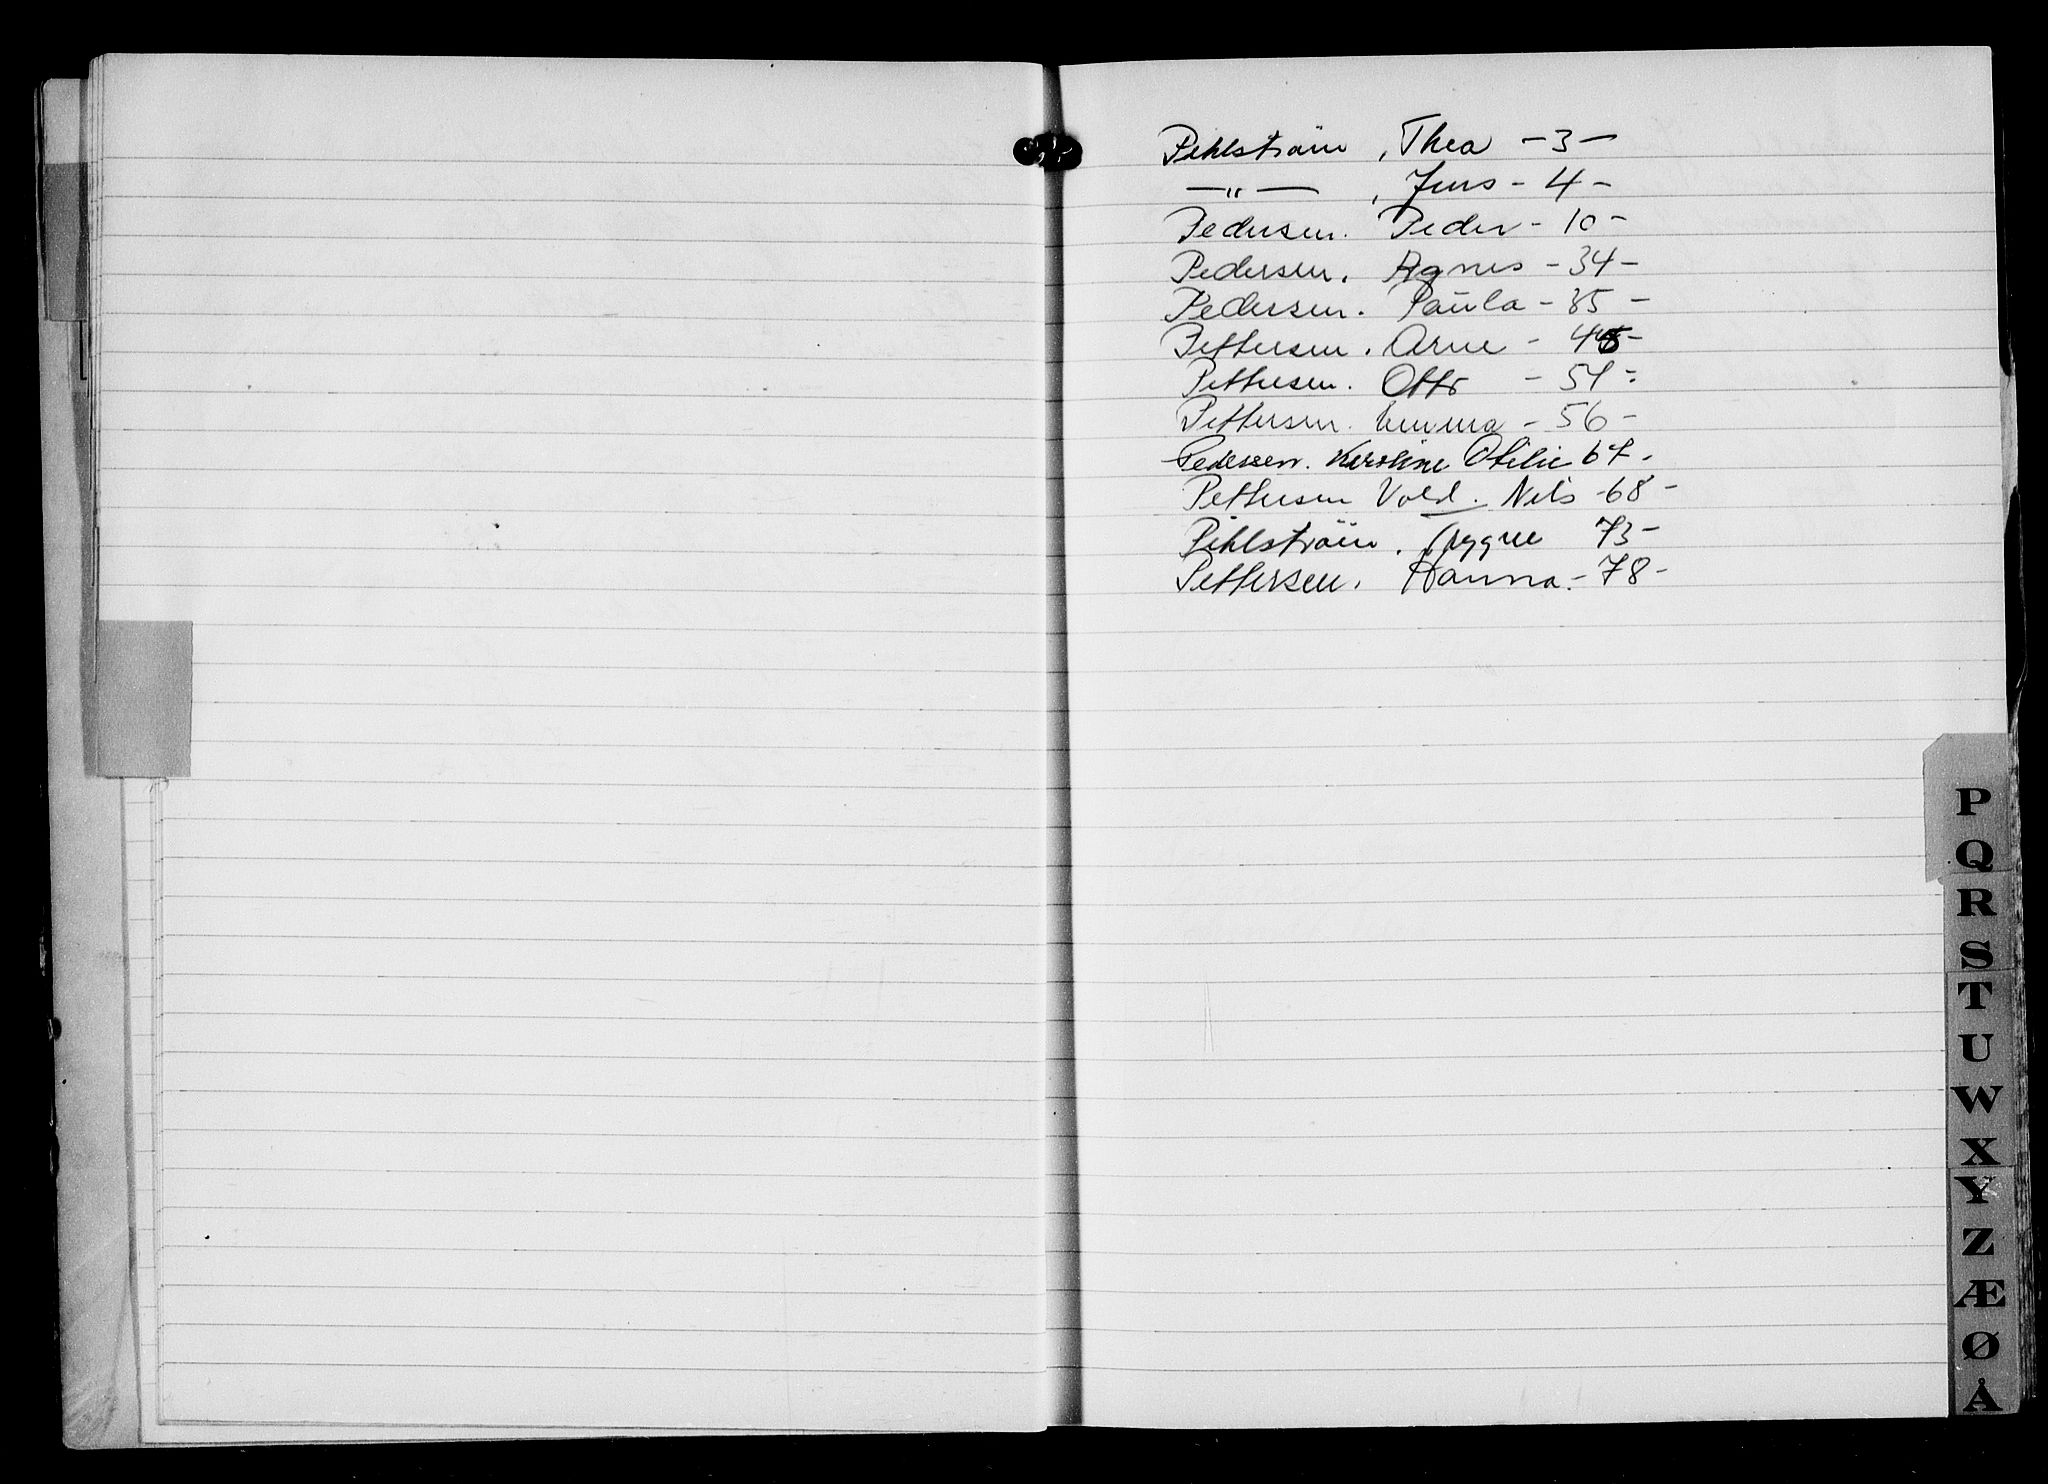 Pihlström, Thea - 3 -
—"—, Jens - 4 -
Pedersen. Peder - 10 -
Pedersen. Agnes - 34 -
Pedersen. Paula - 35 -
Pettersen. Arne - 45 -
Pettersen. Otto - 54 -
Pettersen. Emma - 56 -
Pedersen. Karoline Otilie 67.
Pettersen Vold. Nils - 68 -
Pihlström. 73 -
Pettersen. Hanna. - 78 -
P
Q
R
S
T
U
W
X
Y
Z
Æ
Ø
Å